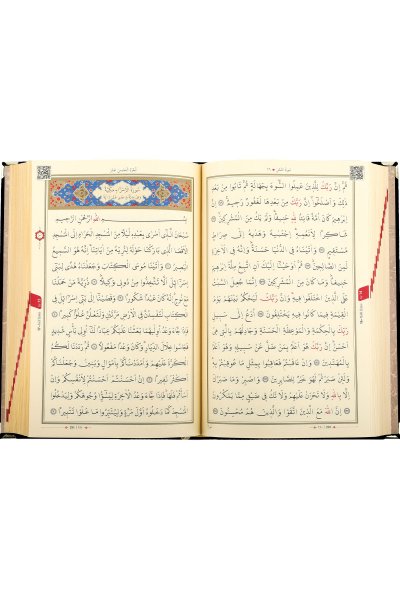 سورة النحل ١٦
ثُمَّ اِنَّ رَبَّكَ لِلَّذِينَ عَمِلُوا السُّوءَ بِجَهَالَةٍ ثُمَّ تَابُوا مِنْ بَعْدِ
ذٰلِكَ وَاَصْلَحُوا اِنَّ رَبَّكَ مِنْ بَعْدِهَا لَغَفُورٌ رَحِيمٌ اِنَّ
اِبْرٰهِيمَ كَانَ اُمَّةً قَانِتًا لِلّٰهِ حَنِيفًا وَلَمْ يَكُ مِنَ الْمُشْرِكِينَ
شَاكِرًا لِاَنْعُمِهِ اِجْتَبٰيهُ وَهَدٰيهُ اِلٰى صِرَاطٍ
مُسْتَقِيمٍ وَاٰتَيْنَاهُ فِي الدُّنْيَا حَسَنَةً وَاِنَّهُ فِي الْاٰخِرَةِ
لَمِنَ الصَّالِحِينَ ثُمَّ اَوْحَيْنَا اِلَيْكَ اَنِ اتَّبِعْ مِلَّةَ اِبْرٰهِيمَ
حَنِيفًا وَمَا كَانَ مِنَ الْمُشْرِكِينَ اِنَّمَا جُعِلَ السَّبْتُ
عَلَى الَّذِينَ اخْتَلَفُوا فِيهِ وَاِنَّ رَبَّكَ لَيَحْكُمُ بَيْنَهُمْ يَوْمَ
الْقِيٰمَةِ فِيمَا كَانُوا فِيهِ يَخْتَلِفُونَ اُدْعُ اِلٰى سَبِيلِ
رَبِّكَ بِالْحِكْمَةِ وَالْمَوْعِظَةِ الْحَسَنَةِ وَجَادِلْهُمْ بِالَّتِي هِيَ
اَحْسَنُ اِنَّ رَبَّكَ هُوَ اَعْلَمُ بِمَنْ ضَلَّ عَنْ سَبِيلِهِ وَهُوَ اَعْلَمُ
بِالْمُهْتَدِينَ وَاِنْ عَاقَبْتُمْ فَعَاقِبُوا بِمِثْلِ مَا عُوقِبْتُمْ بِهِ
وَلَئِنْ صَبَرْتُمْ لَهُوَ خَيْرٌ لِلصَّابِرِينَ وَاصْبِرْ وَمَا صَبْرُكَ
اِلَّا بِاللّٰهِ وَلَا تَحْزَنْ عَلَيْهِمْ وَلَا تَكُ فِي ضَيْقٍ مِمَّا يَمْكُرُونَ
اِنَّ اللّٰهَ مَعَ الَّذِينَ اتَّقَوْا وَالَّذِينَ هُمْ مُحْسِنُونَ
الجزء الخامس عشر
بِسْمِ اللّٰهِ الرَّحْمٰنِ الرَّحِيمِ
سُبْحَانَ الَّذِي اَسْرٰى بِعَبْدِهِ لَيْلًا مِنَ الْمَسْجِدِ الْحَرَامِ اِلَى الْمَسْجِدِ
الْاَقْصَا الَّذِي بَارَكْنَا حَوْلَهُ لِنُرِيَهُ مِنْ اٰيَاتِنَا اِنَّهُ هُوَ السَّمِيعُ
الْبَصِيرُ وَاٰتَيْنَا مُوسَى الْكِتَابَ وَجَعَلْنَاهُ هُدًى لِبَنِي
اِسْرَائِيلَ اَلَّا تَتَّخِذُوا مِنْ دُونِي وَكِيلًا ذُرِّيَّةَ مَنْ حَمَلْنَا
مَعَ نُوحٍ اِنَّهُ كَانَ عَبْدًا شَكُورًا وَقَضَيْنَا اِلٰى بَنِي اِسْرَائِيلَ فِي
الْكِتَابِ لَتُفْسِدُنَّ فِي الْاَرْضِ مَرَّتَيْنِ وَلَتَعْلُنَّ عُلُوًّا كَبِيرًا
فَاِذَا جَاءَ وَعْدُ اُولٰيهُمَا بَعَثْنَا عَلَيْكُمْ عِبَادًا لَنَا اُولِي بَأْسٍ شَدِيدٍ
فَجَاسُوا خِلَالَ الدِّيَارِ وَكَانَ وَعْدًا مَفْعُولًا ثُمَّ رَدَدْنَا لَكُمُ
الْكَرَّةَ عَلَيْهِمْ وَاَمْدَدْنَاكُمْ بِاَمْوَالٍ وَبَنِينَ وَجَعَلْنَاكُمْ
اَكْثَرَ نَفِيرًا اِنْ اَحْسَنْتُمْ اَحْسَنْتُمْ لِاَنْفُسِكُمْ وَاِنْ
اَسَأْتُمْ فَلَهَا فَاِذَا جَاءَ وَعْدُ الْاٰخِرَةِ لِيَسُوؤُا وُجُوهَكُمْ وَلِيَدْخُلُوا
الْمَسْجِدَ كَمَا دَخَلُوهُ اَوَّلَ مَرَّةٍ وَلِيُتَبِّرُوا مَا عَلَوْا تَتْبِيرًا